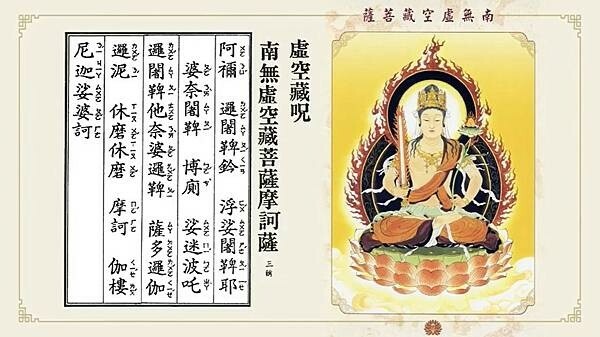 南無虛空藏菩薩
虛空藏咒
南無虛空藏菩薩摩訶薩 三稱
阿禰 邏闍鞞鈴 浮娑闍鞞耶
婆奈闍鞞 博廁 娑迷波吒
邏闍鞞他奈婆邏鞞 薩多邏伽
邏泥 休磨休磨 摩訶 伽樓
尼迦娑婆訶